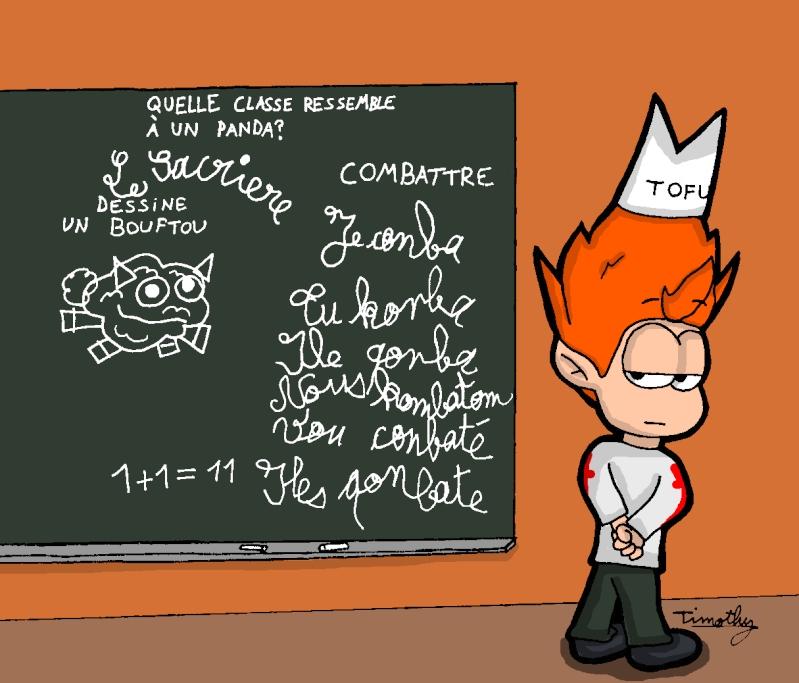 QUELLE CLASSE RESSEMBLE
À UN PANDA?
Le Sacriere
DESSINE
UN BOUFTOU
COMBATTRE
Je conba
Tu konba
Ile qonba
Nous kombatom
Vou conbaté
Iles qonbate
1+1=11
TOFU
Timothy